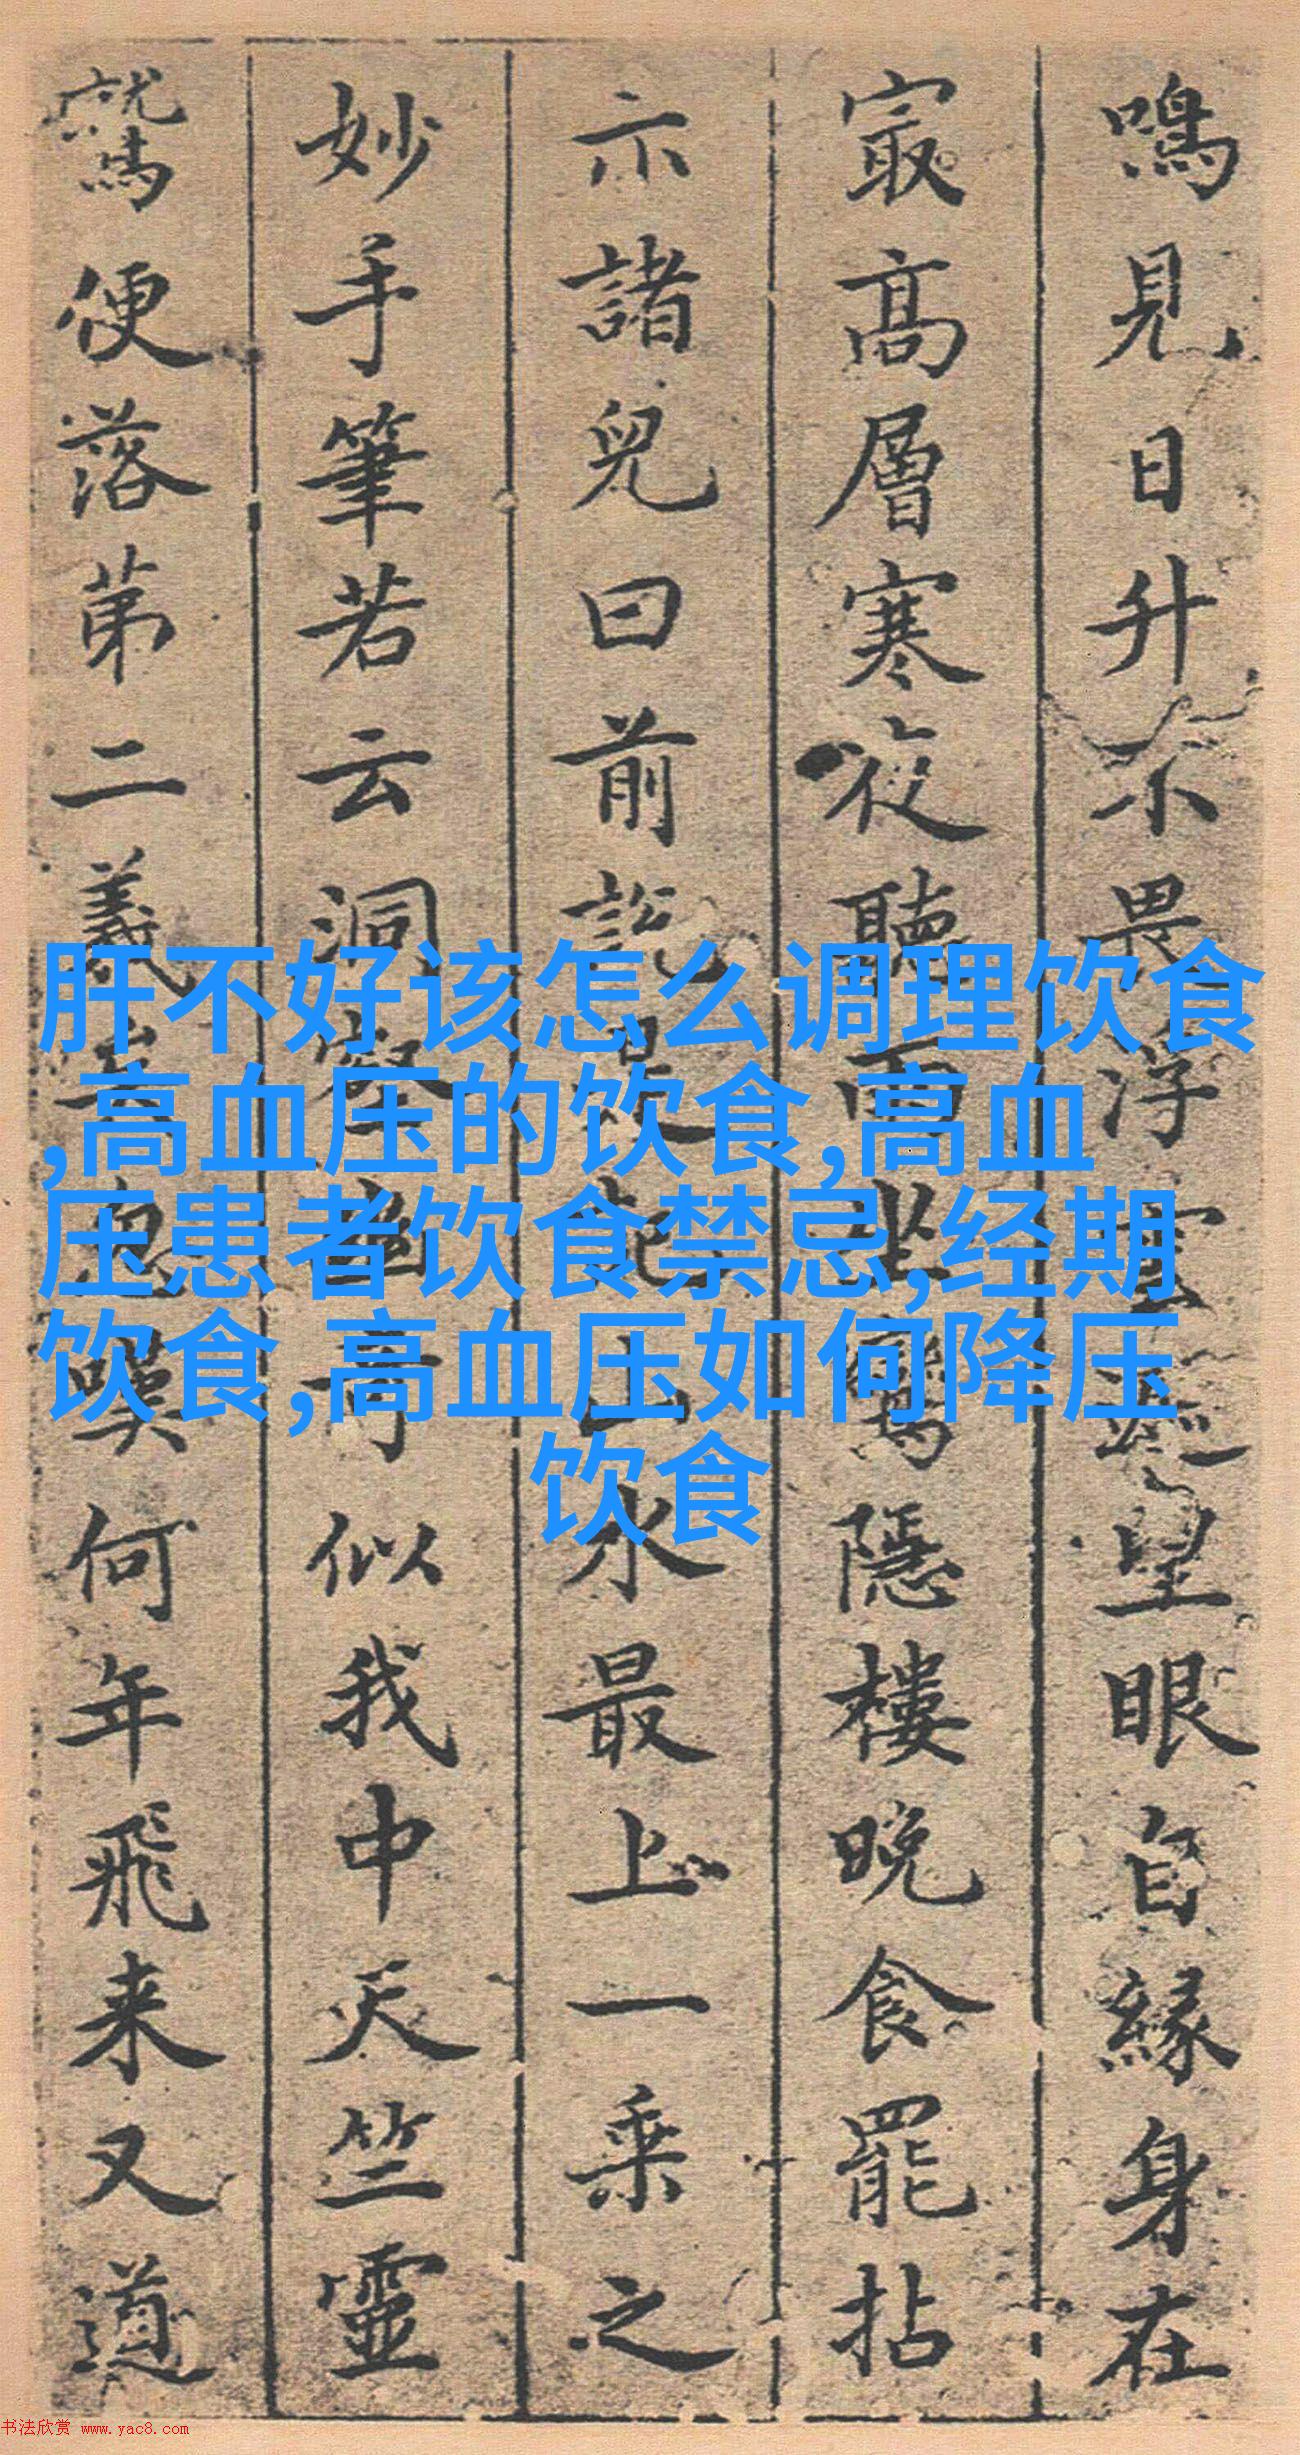 鳴見日升不畏浮雲遮望眼自緣身在
㝡高層寒夜聽雨坐隱樓晚食罷拈
示諸兒曰前說是山水最上一乘之
妙手筆若云洞壑幽奇似我中天竺靈
鷲便落第二義矣忽嘆何年飛来又道
肝不好该怎么调理饮食
,高血压的饮食,高血
压患者饮食禁忌,经期
饮食,高血压如何降压
饮食
书法欣赏 www.yac8.com